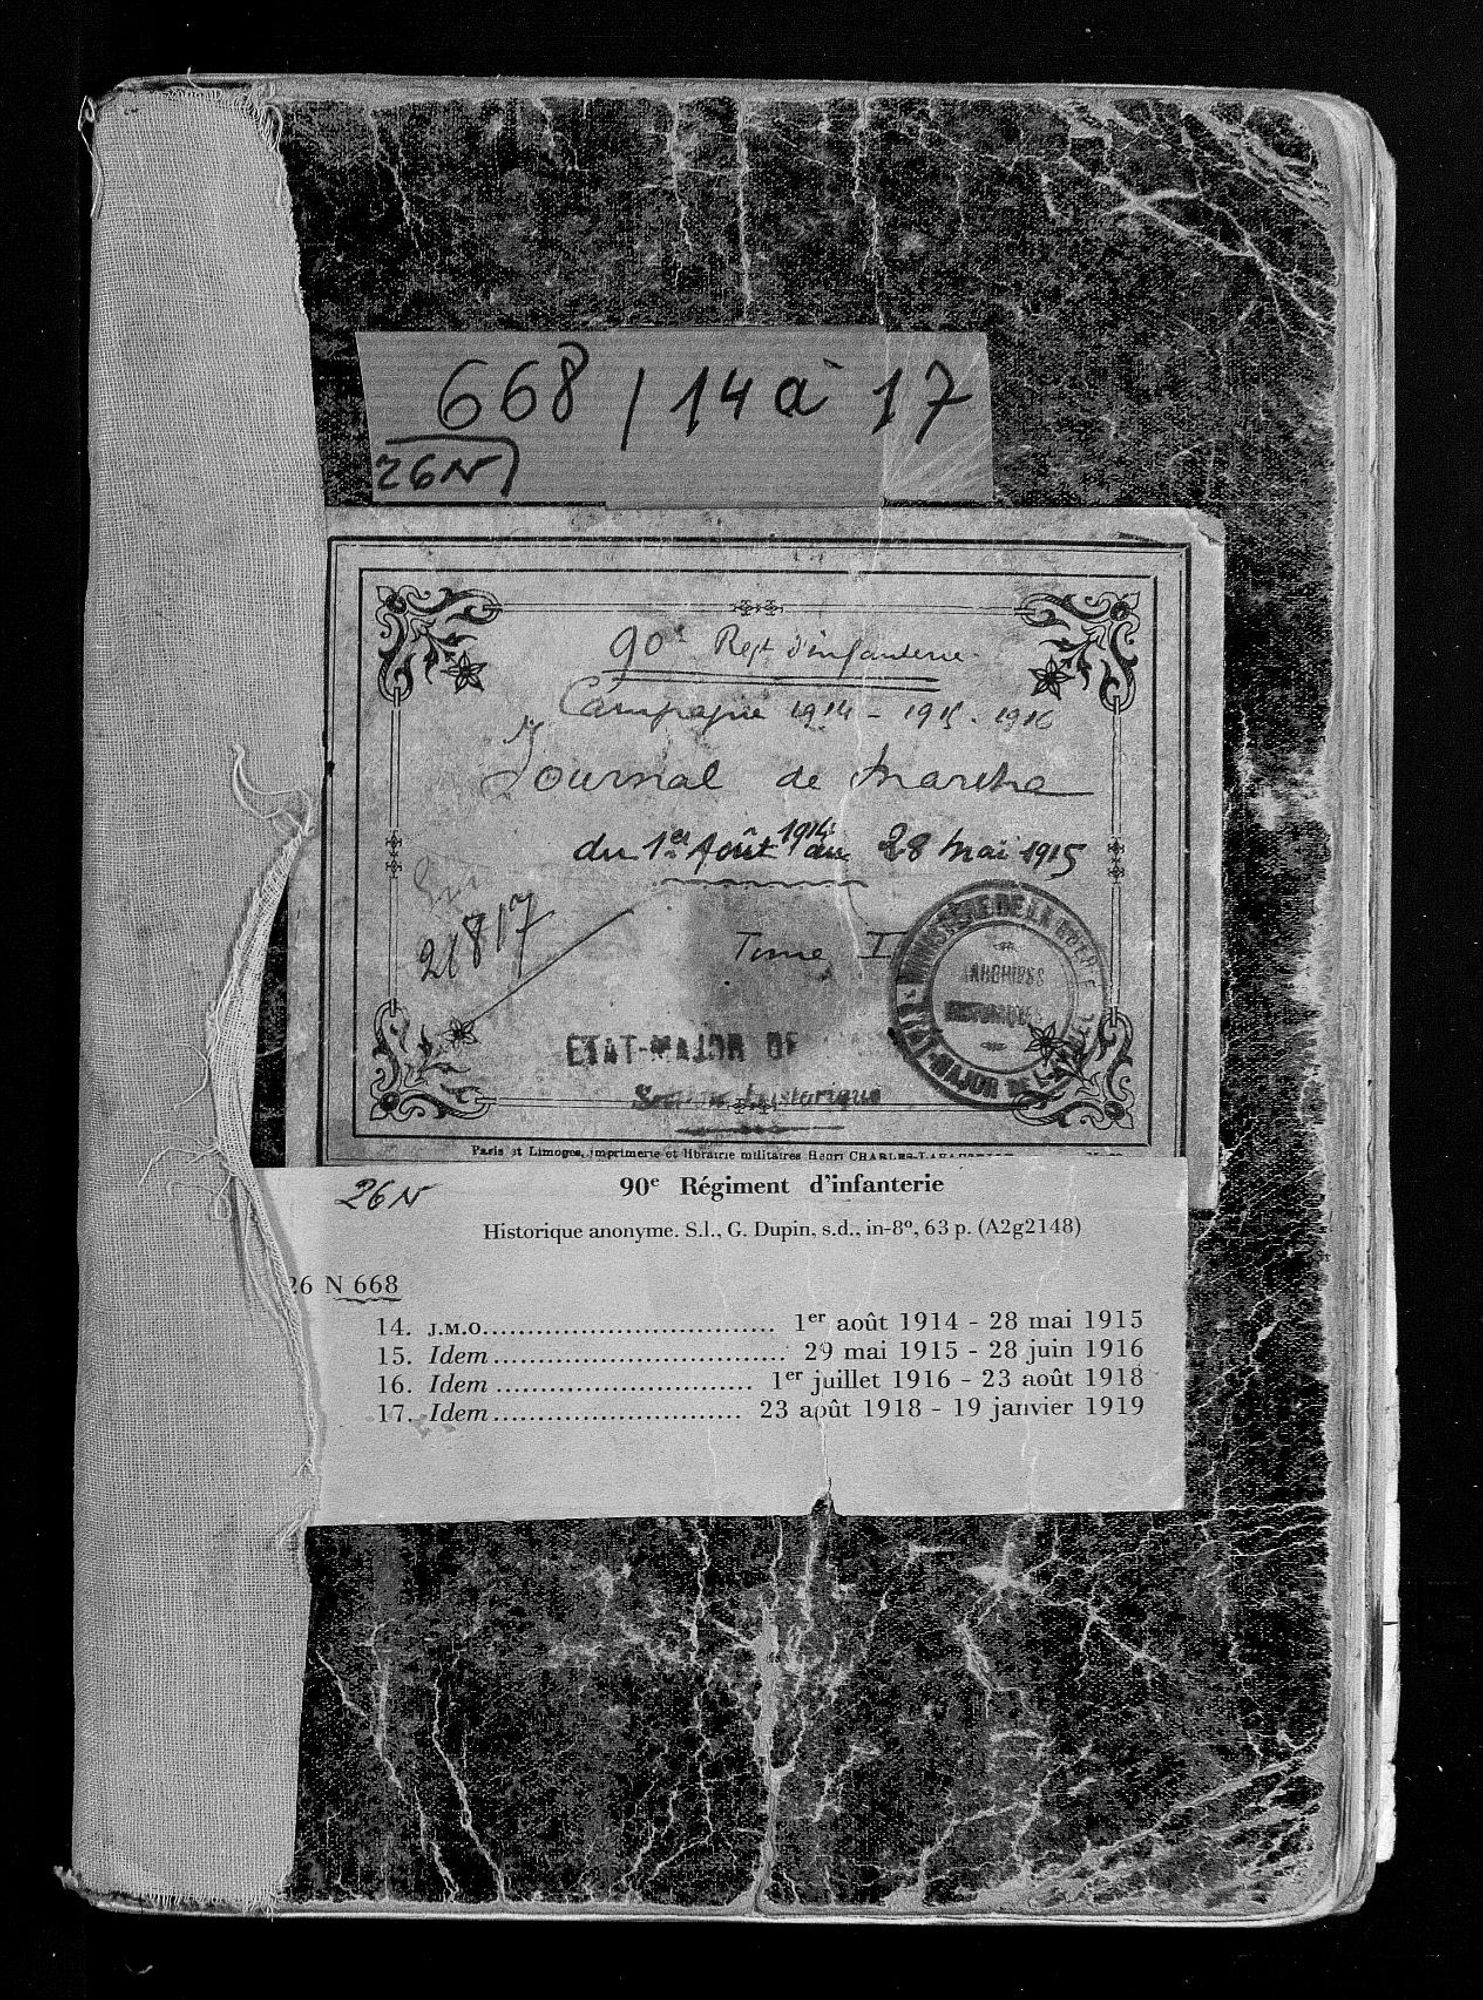 668 / 14 à 17
26N
90e Regt d'infanterie
Campagne 1914 - 1915 - 1916
Journal de Marche
du 1er Août 1914 au 28 Mai 1915
21817
Tome I
MINISTÈRE DE LA GUERRE
ARCHIVES
HISTORIQUES
ÉTAT-MAJOR DE L'ARMÉE
ÉTAT-MAJOR DE
Section historique
Paris et Limoges, imprimerie et librairie militaires Henri CHARLES-LAVAUZELLE
26 N
90e Régiment d'infanterie
Historique anonyme. S.l., G. Dupin, s.d., in-8º, 63 p. (A2g2148)
26 N 668
14. J.M.O................................. 1er août 1914 - 28 mai 1915
15. Idem................................. 29 mai 1915 - 28 juin 1916
16. Idem ............................. 1er juillet 1916 - 23 août 1918
17. Idem............................ 23 août 1918 - 19 janvier 1919